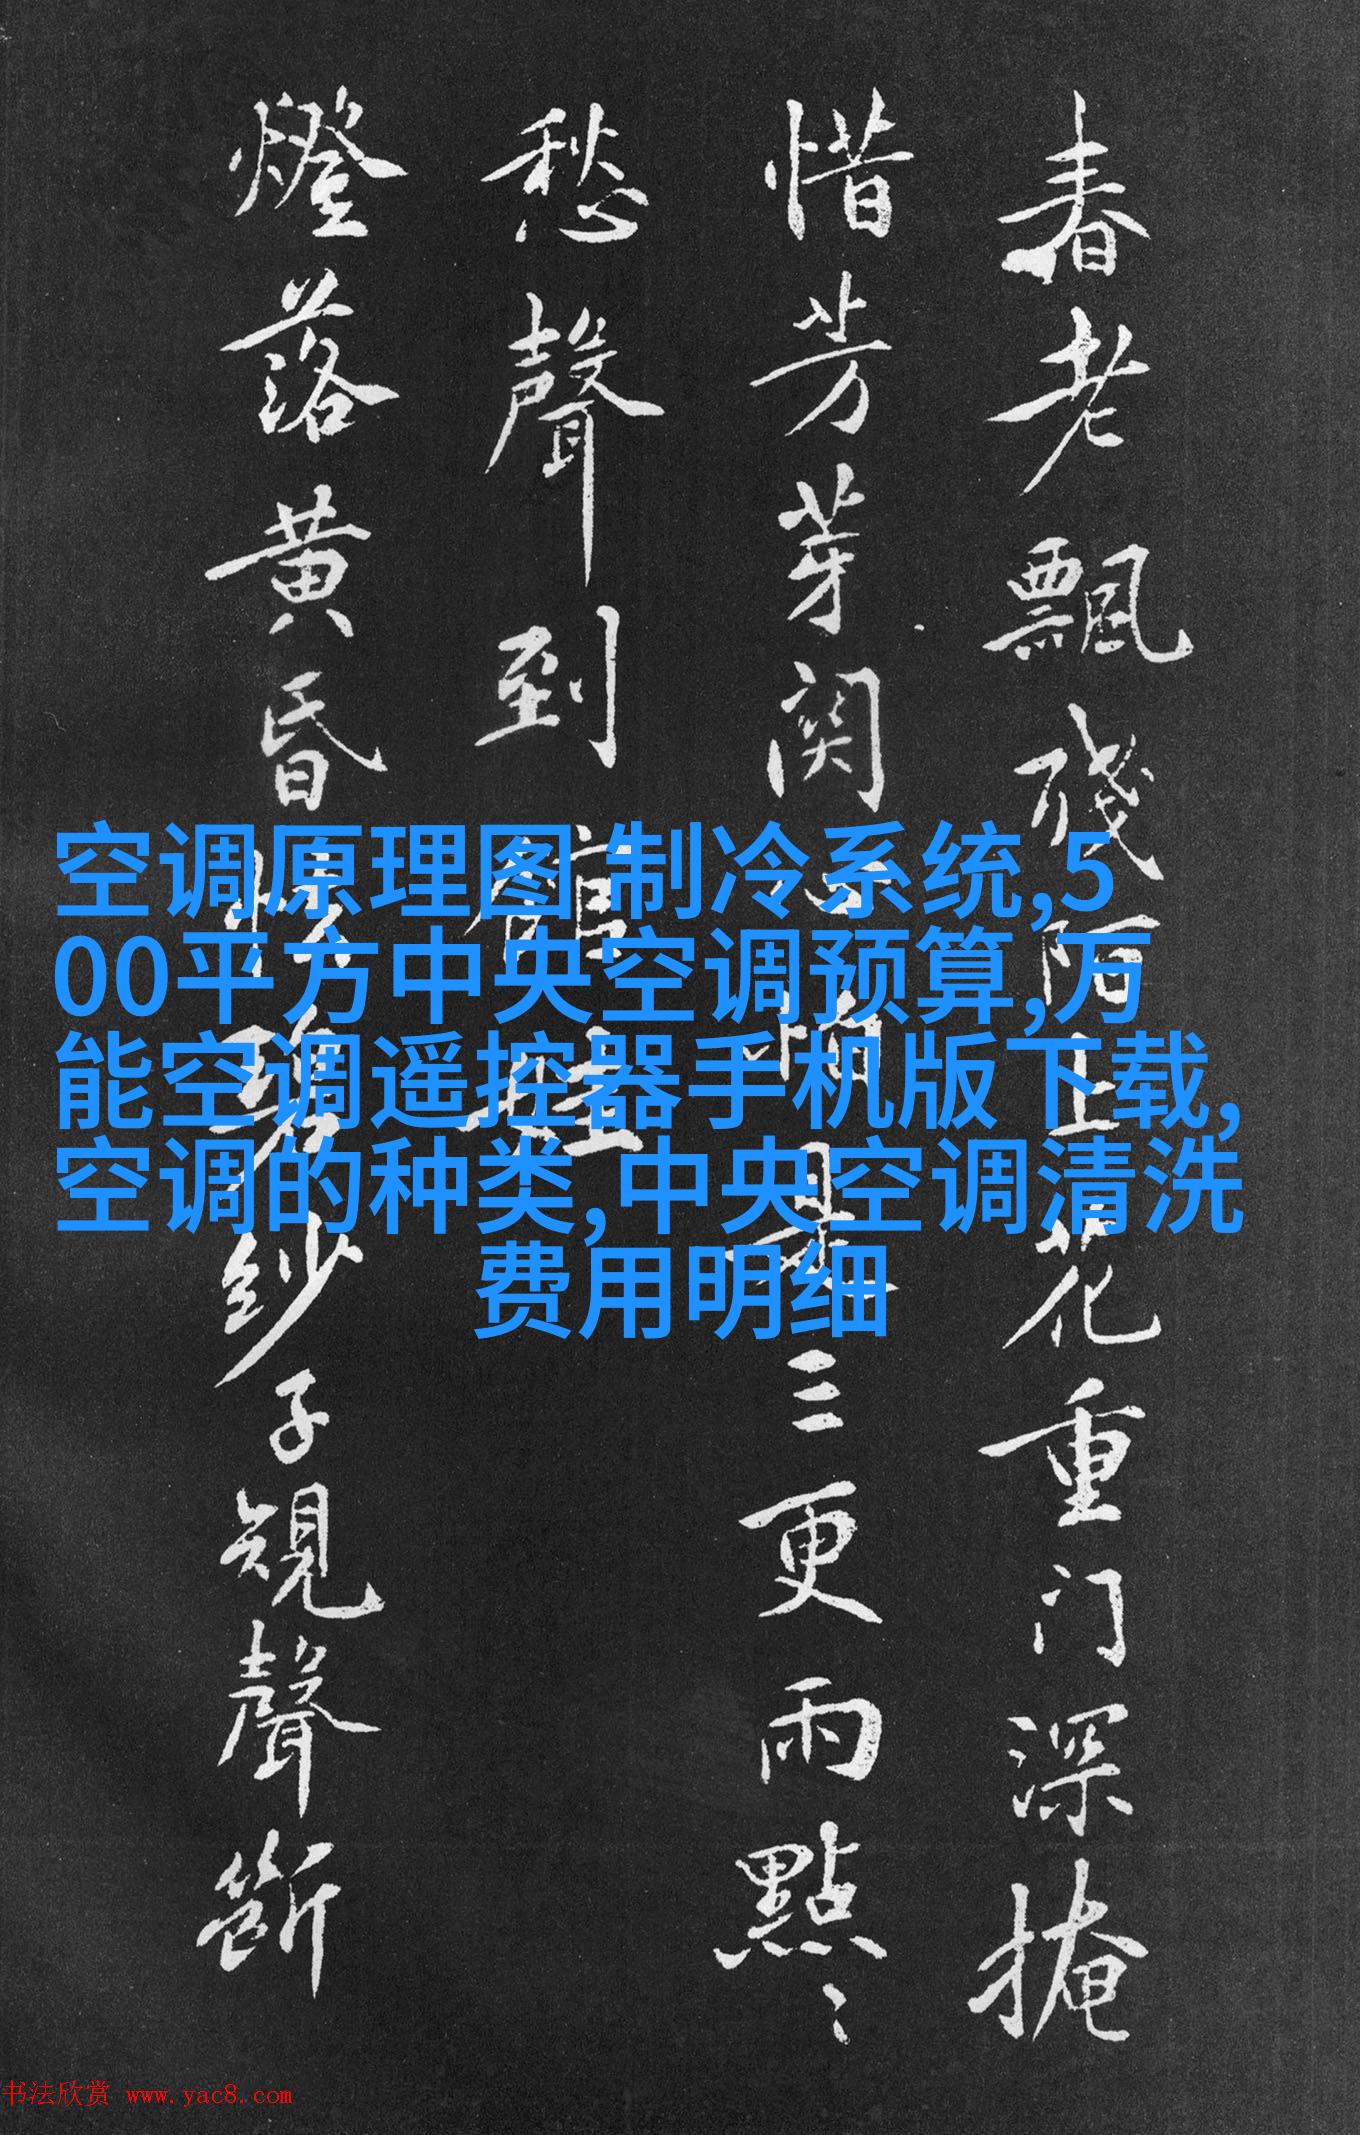 春老飄殘陌上花重门深掩
惜芳芽関心怕是三更雨點〻
愁聲到館娃
燈落黄昏碧紗子規聲斷
空调原理图 制冷系统,5
00平方中央空调预算,万
能空调遥控器手机版下载,
空调的种类,中央空调清洗
费用明细
书法欣赏 www.yac8.com